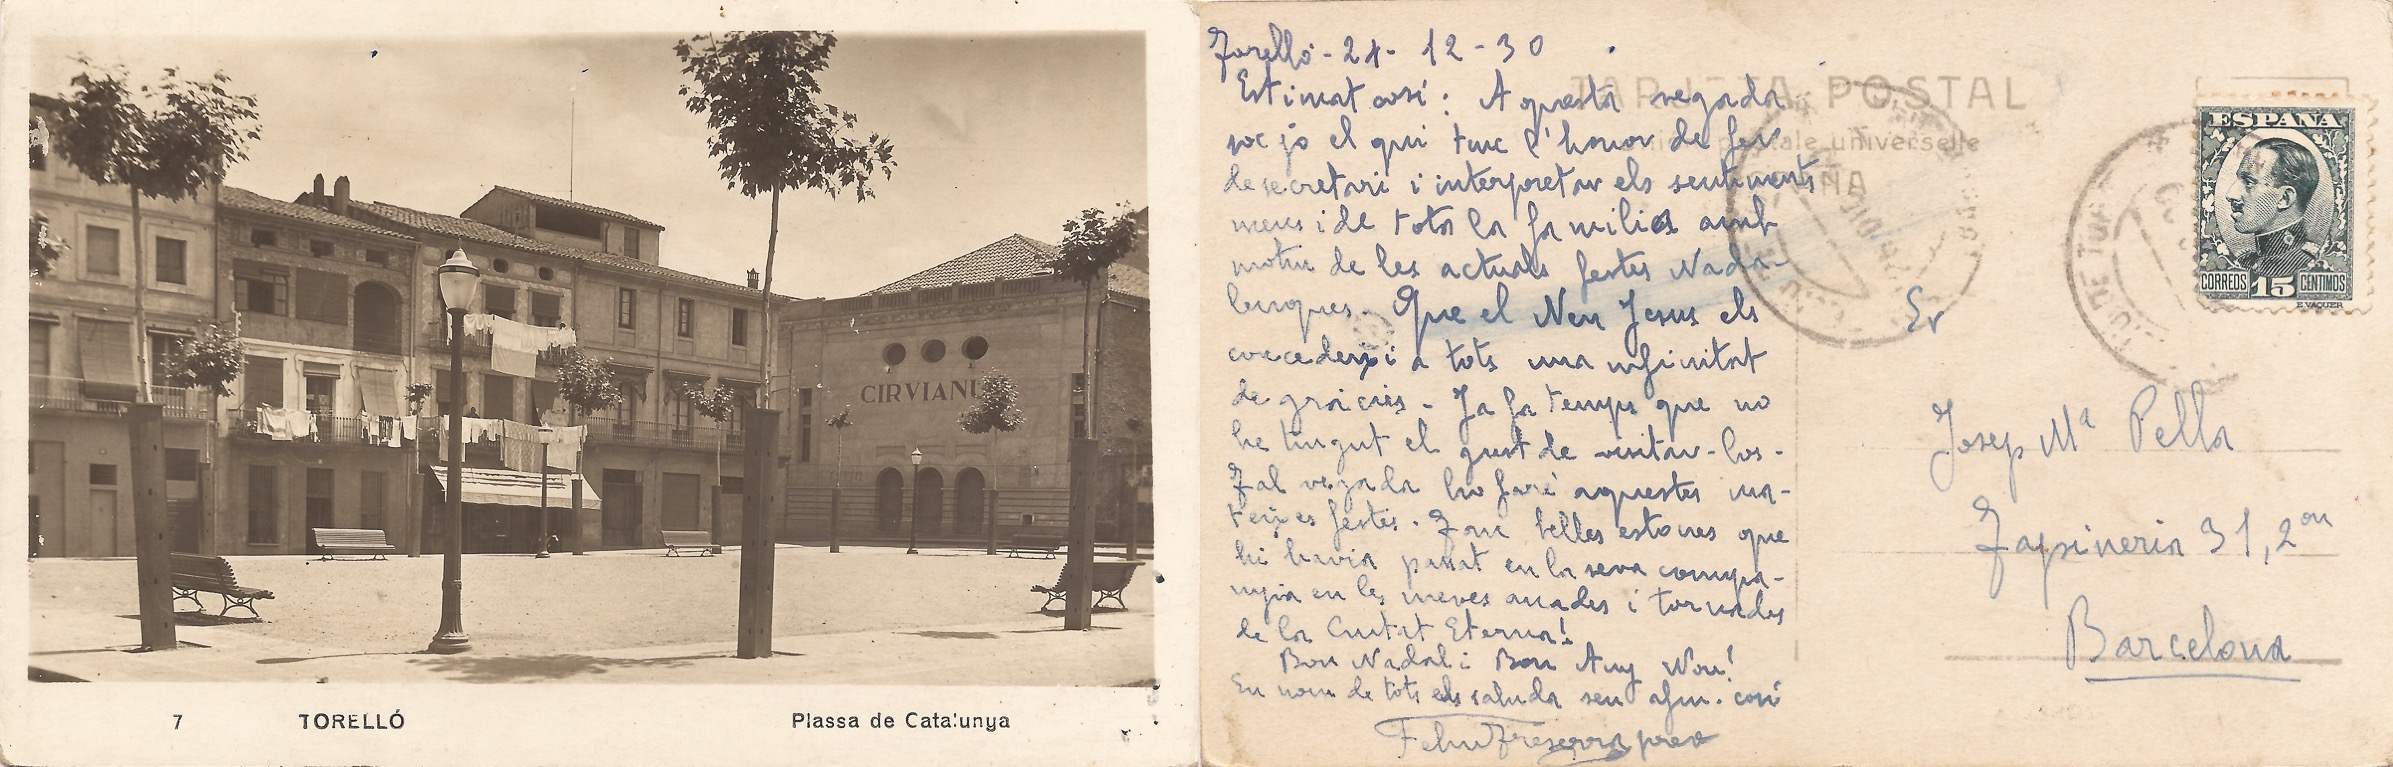 CIRVIANU
7 TORELLÓ Plassa de Catalunya
Torelló - 21 - 12 - 30
Estimat cosí: Aquesta vegada
soc jo el qui tinc l'honor de fer
de secretari i interpretar els sentiments
meus i de tota la familia amb
motiu de les actuals festes Nada-
lenques. Que el Nen Jesus els
concedeixi a tots una infinitat
de gràcies - Ja fa temps que no
he tingut el gust de visitar-los.
Tal vegada ho faré aquestes ma-
teixes festes. Tant belles estones que
hi havia passat en la seva compa-
nyia en les meves anades i tornades
de la Ciutat Eterna!
Bon Nadal i Bon Any Nou!
En nom de tots els saluda seu afm. cosí
Feliu prev
TARJETA POSTAL
universelle
ESPAÑA
CORREOS 15 CENTIMOS
E. VAQUER
Sr
Josep Mª Pella
Tapineria 31, 2on
Barcelona